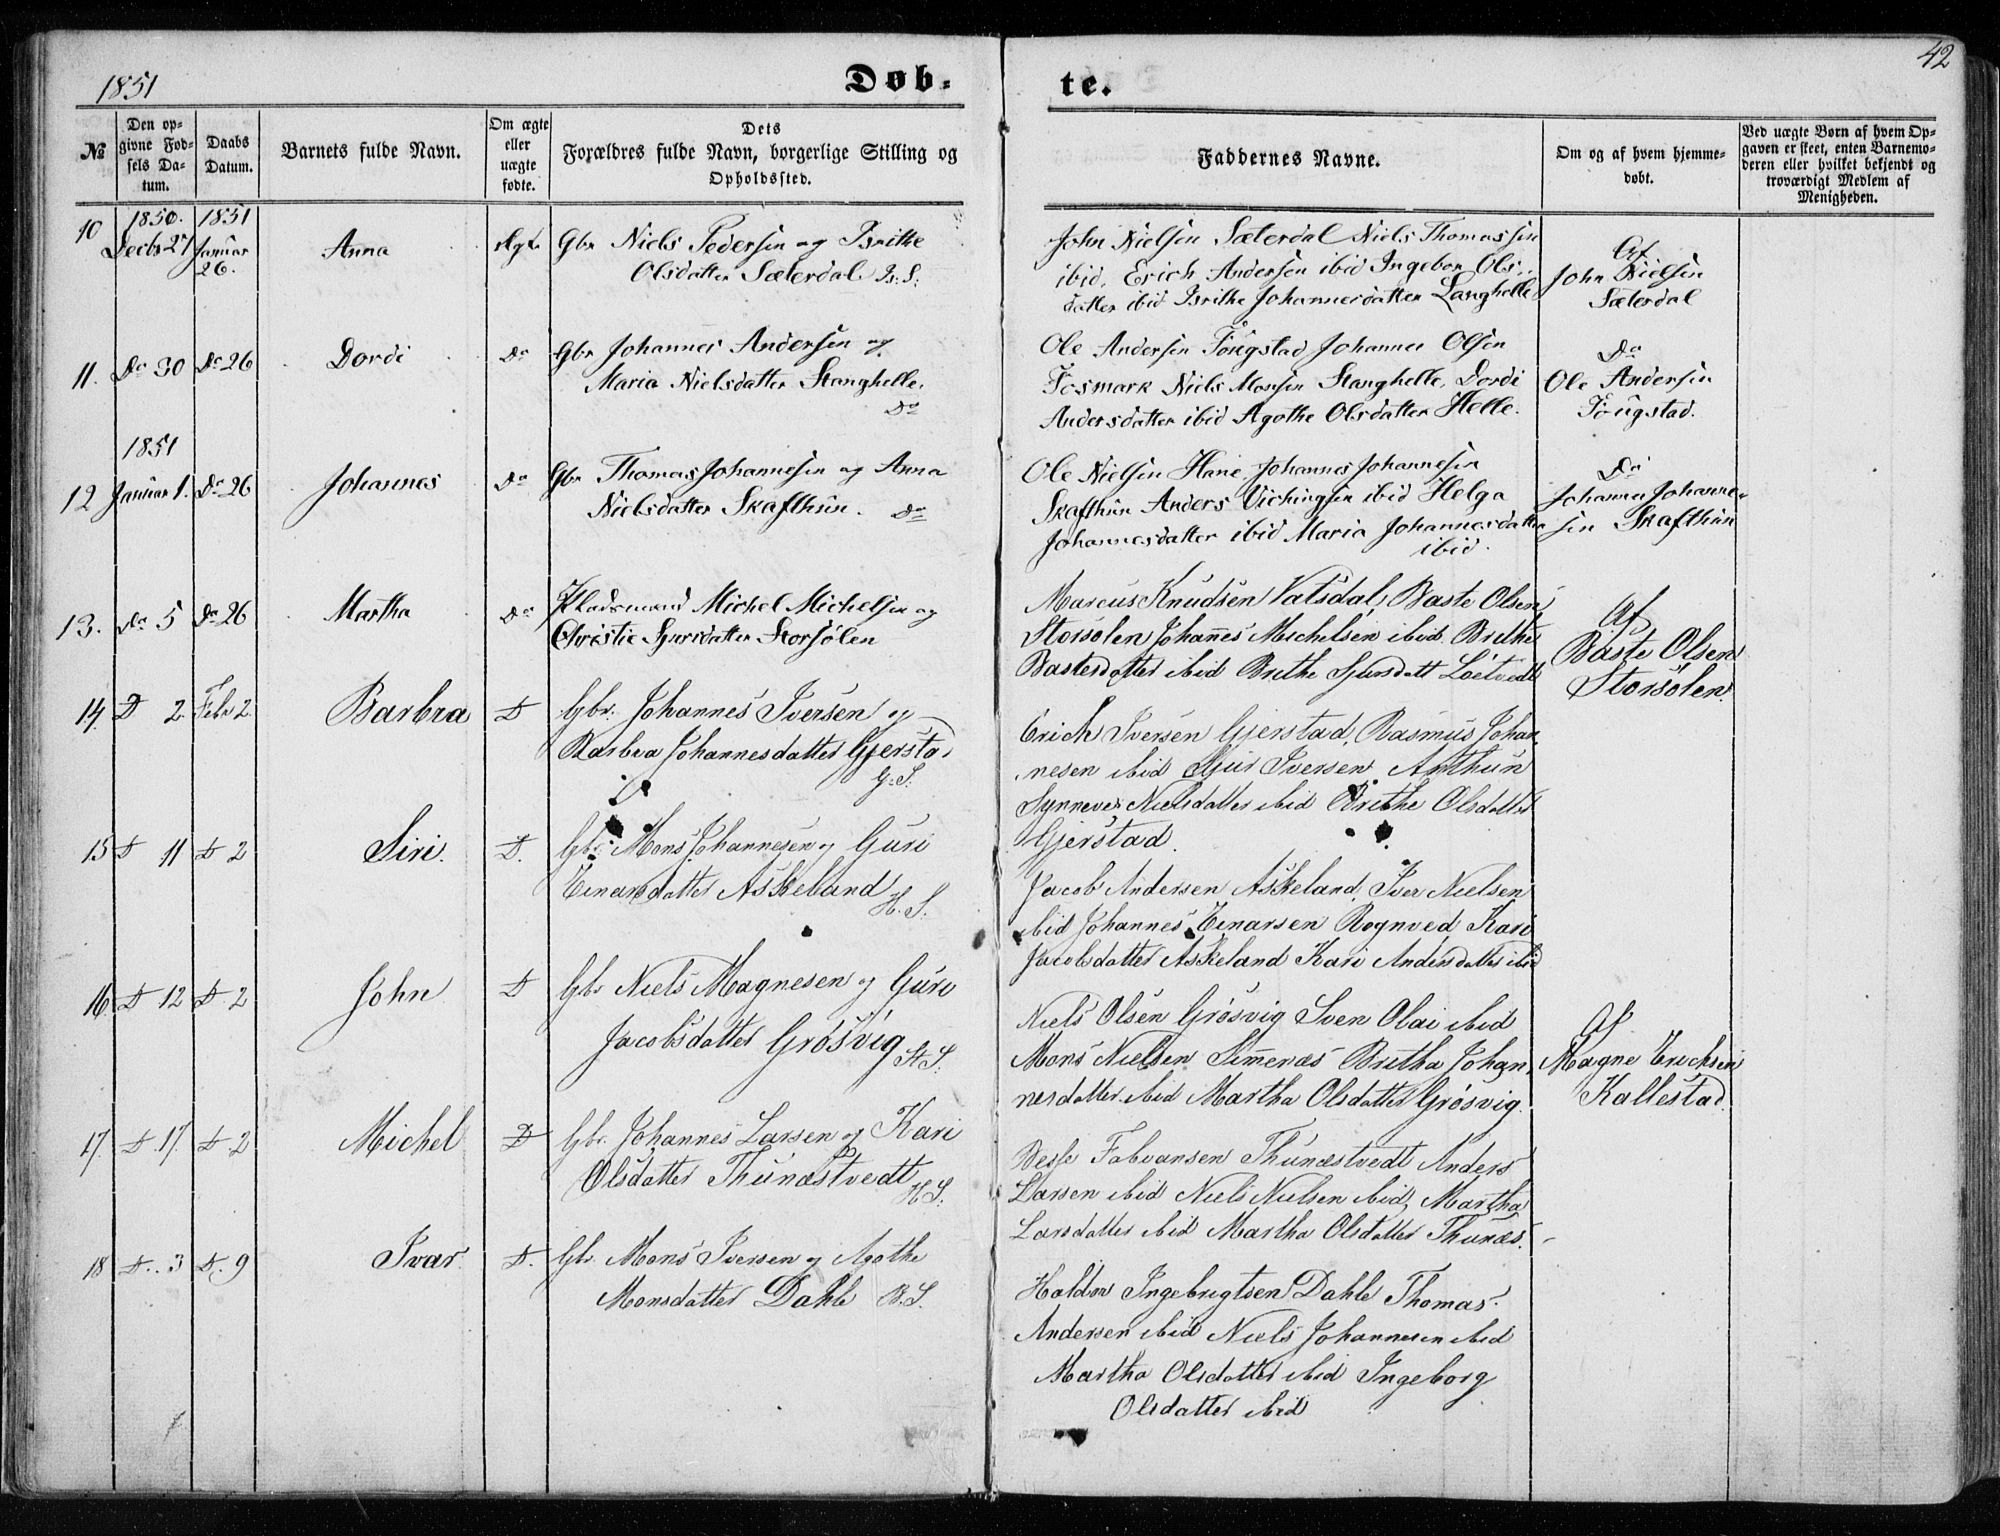 1851
Døb-
te.
42
No
Den op-
givne Fød-
sels Da-
tum.
Daabs
Datum.
Barnets fulde Navn.
Om ægte
eller
uægte
fødte.
Dets
Forældres fulde Navn, borgerlige Stilling og
Opholdssted.
Faddernes Navne.
Om og af hvem hjemme-
døbt.
Ved uægte Børn af hvem Op-
gaven er skeet, enten Barnemo-
deren eller hvilket bekjendt og
troværdigt Medlem af
Menigheden.
10
1850.
Decbr 27
1851
Januar
26.
Anna
Ægte
Gbr Niels Pedersen og Brithe
Olsdatter Sæterdal B: S:
John Nielsen Sæterdal Niels Thomassen
ibid. Erich Andersen ibid Ingebor Ols-
datter ibid Brithe Johannesdatter Langhelle
Af
John Nielsen
Sæterdal
11. Do 30 Do 26
Dordi
Do
Gbr Johannes Andersen og
Maria Nielsdatter Stanghelle.
Do
Ole Andersen Fougstad Johannes Olsen
Fosmark Niels Monsen Stanghelle, Dordi
Andersdatter ibid Agothe Olsdatter Helle.
Do
Ole Andersen
Fougstad.
1851
12 Januar 1. Do 26
Johannes
Do
Gbr Thomas Johannesen og Anna
Nielsdatter Skafthun. Do
Ole Nielsen Hane Johannes Johannesen
Skafthun Anders Vichingsen ibid Helga
Johannesdatter ibid Maria Johannesdatter
ibid.
Do
Johannes Johanne-
sen Skafthun
13. Do 5 Do 26
Martha
Do
Pladsmand Michel Michelsen og
Christie Sjursdatter Storsølen
Marcus Knudsen Vatsdal, Baste Olsen
Storsolen Johannes Michelsen ibid. Brithe
Bastesdatter ibid Brithe Sjursdatt Løtvedt
Af
Baste Olsen
Storsolen.
14. D 2. Febr 2.
Barbra
D
Gbr. Johannes Iversen og
Barbra Johannesdatter Gjerstad
G. S.
Erich Iversen Gjerstad, Rasmus Johan-
nesen ibid Sjur Iversen Arthun
Synneve Nielsdatter ibid Brithe Olsdatter
Gjerstad.
15 D 11 D 2
Siri.
D.
Gbr. Mons Johannesen og Guri
Einarsdatter Askeland
H. S.
Jacob Andersen Askeland, Iver Nielsen
ibid Johannes Einarsen Rognved Kari
Jacobsdatter Askeland Kari Andersdatter ibid
16 D 12 D 2
John
D
Gbr Niels Magnesen og Guri
Jacobsdatter Grøsvig St. S.
Niels Olsen Grøsvig Sven Olai ibid
Mons Nielsen Simmenæs Britha Johan-
nesdatter ibid Martha Olsdatter Grøsvig.
Af
Magne Erichsen
Kallestad.
17. D 17. D 2
Michel
D
Gbr. Johannes Larsen og Kari
Olsdatter Thunæstvedt
H. S.
Besse Fabiansen Thunæstvedt Anders
Larsen ibid Niels Nielsen ibid, Martha
Larsdatter ibid Martha Olsdatter Thunæs.
18 D. 3 D. 9
Ivar
D.
Gbr. Mons Iversen og Agothe
Monsdatter Dahle B. S.
Haldor Ingebrigtsen Dahle Thomas
Andersen ibid Niels Johannesen ibid
Martha Olsdatter ibid Ingeborg
Olsdatter ibid